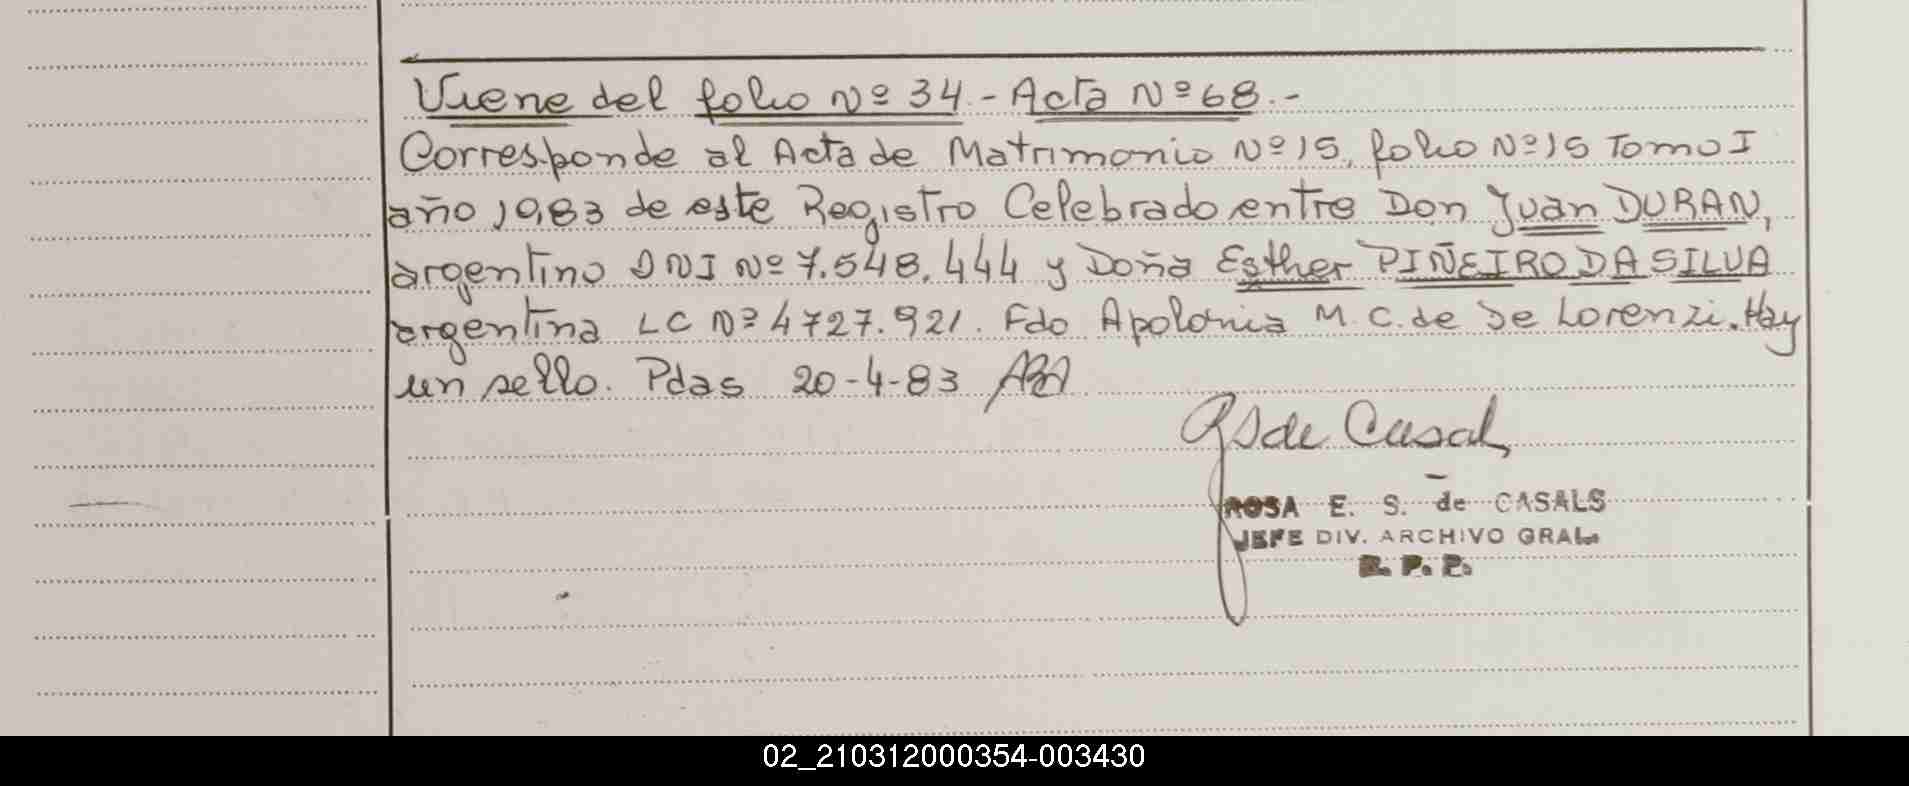 Viene del folio Nº 34.- Acta Nº 68.-
Corresponde al Acta de Matrimonio Nº 15, folio Nº 15 Tomo I
año 1983 de este Registro Celebrado entre Don Juan DURAN,
argentino DNI Nº 7.548.444 y Doña Esther PIÑEIRO DA SILVA
argentina LC Nº 4727.921. Fdo Apolonia M.C. de De Lorenzi. Hay
un sello. Pdas 20-4-83
RS de Casals
ROSA E. S. de CASALS
JEFE DIV. ARCHIVO GRAL.
R. P. P.
02_210312000354-003430